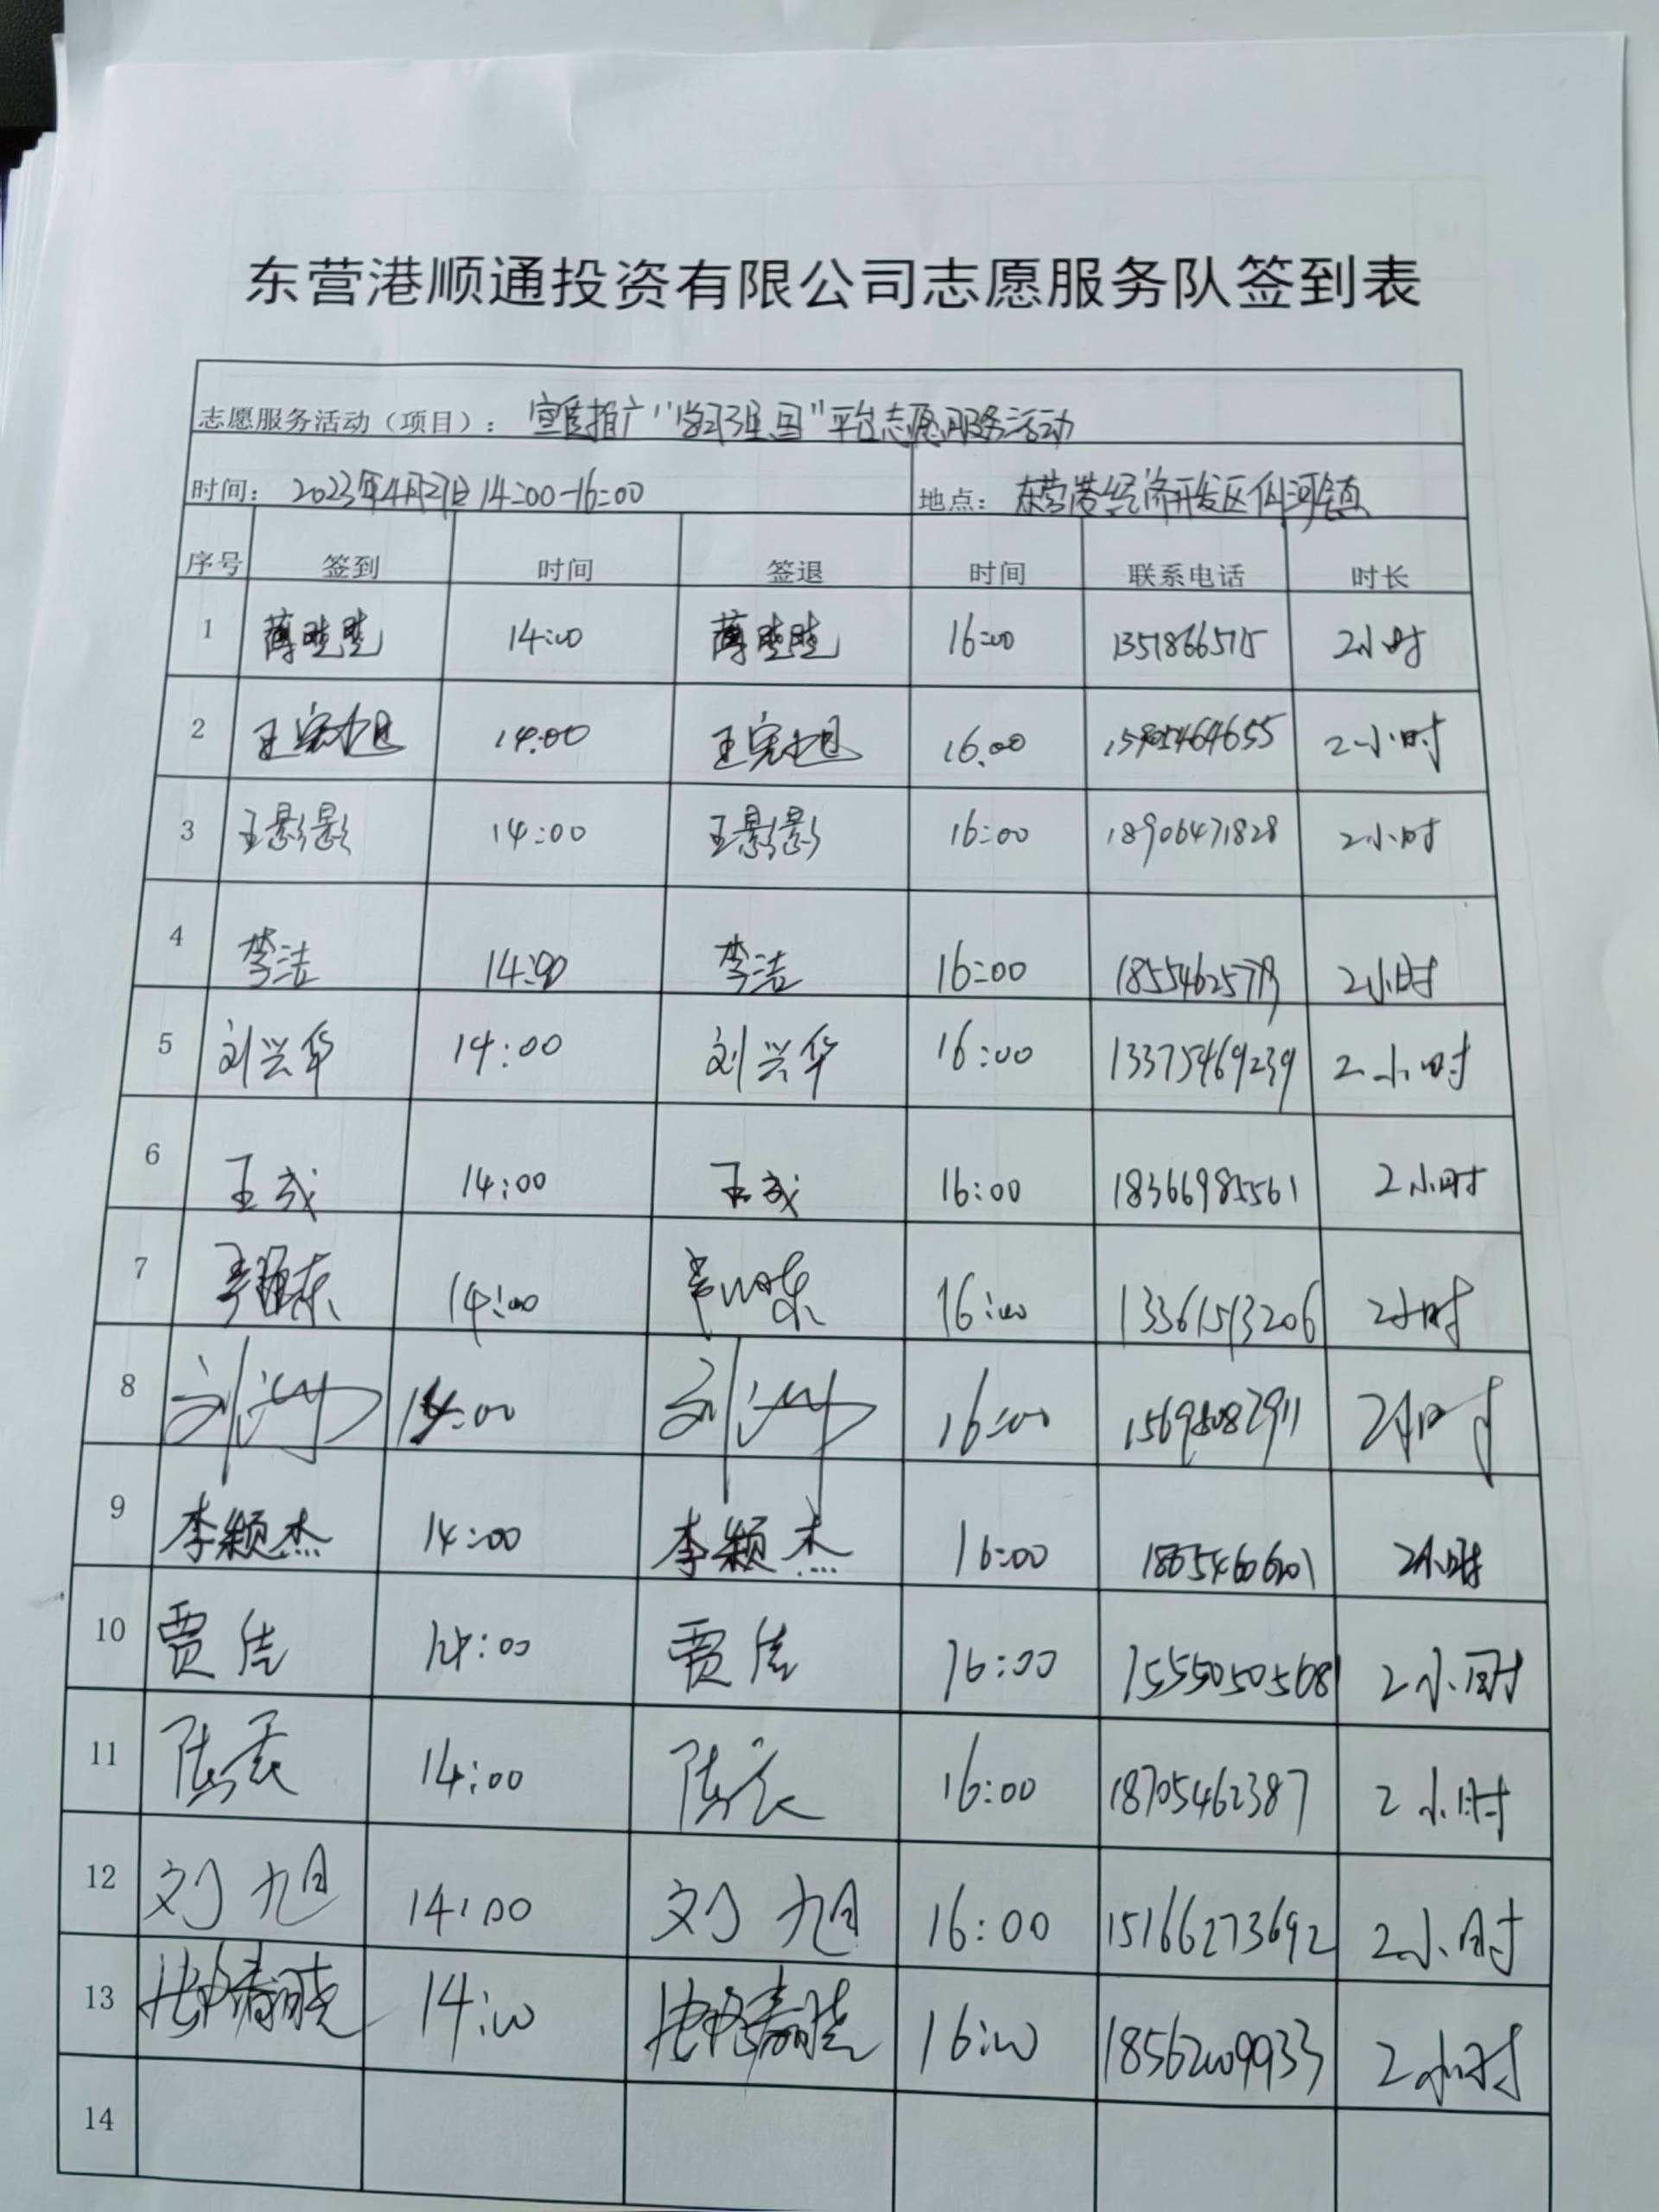 东营港顺通投资有限公司志愿服务队签到表
志愿服务活动（项目）： 宣传推广“学习强国”平台志愿服务活动
时间： 2023年4月27日 14:00-16:00 地点： 东营港经济开发区仙河镇
序号 签到 时间 签退 时间 联系电话 时长
1 薄 14:00 薄 16:00 2小时
2 王宪旭 14:00 王宪旭 16:00 15905464655 2小时
3 王影影 14:00 王影影 16:00 18906471828 2小时
4 李洁 14:00 李洁 16:00 2小时
5 刘兴华 14:00 刘兴华 16:00 13375469239 2小时
6 王成 14:00 王成 16:00 18366985561 2小时
7 14:00 16:00 13361513206 2小时
8 刘 14:00 刘 16:00 15698082911 2小时
9 李颖杰 14:00 李颖杰 16:00 2小时
10 贾佶 14:00 贾佶 16:00 15550505681 2小时
11 陆 14:00 陆 16:00 18705462387 2小时
12 刘旭 14:00 刘旭 16:00 15166273692 2小时
13 14:00 16:00 18562009933 2小时
14